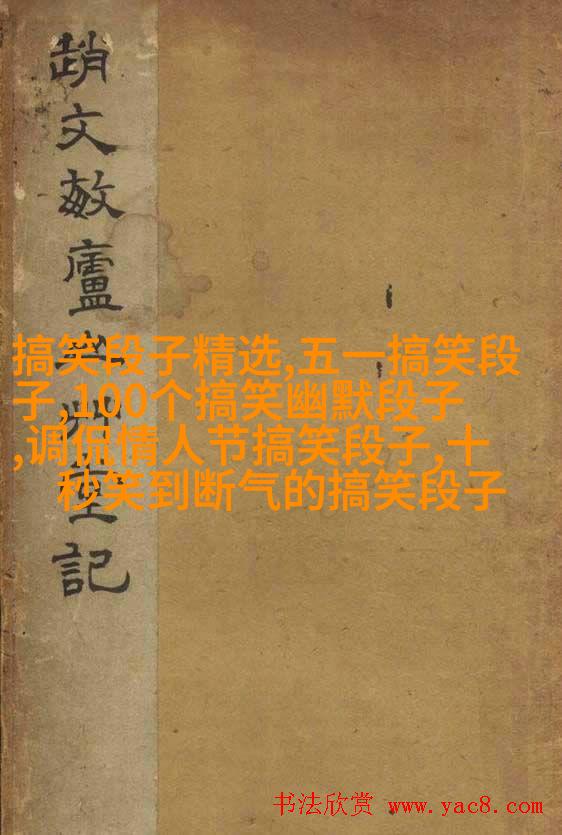 趙文敏廬山艸堂記
搞笑段子精选,五一搞笑段
子,100个搞笑幽默段子
,调侃情人节搞笑段子,十
秒笑到断气的搞笑段子
书法欣赏 www.yac8.com